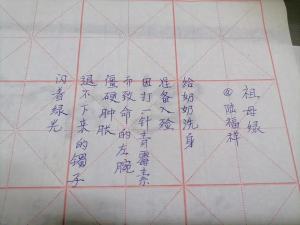 祖母绿
@陆福祥
给奶奶洗身
准备入殓
因打一针青霉素
而致命的左腕
僵硬肿胀
退不下来的镯子
闪着绿光